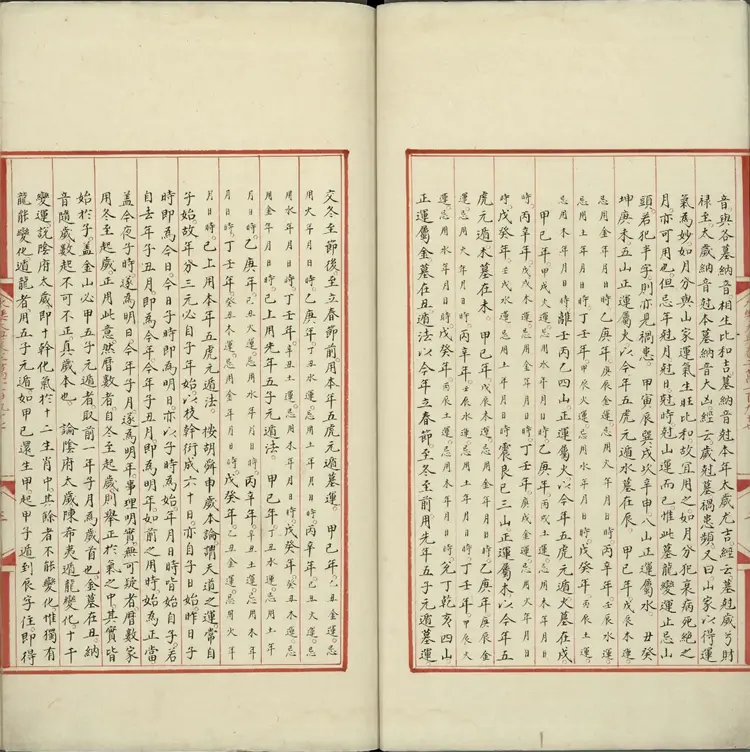 音與各墓納音相生比和吉墓納音尅本年納音尤吉經云墓尅歲兮財
祿至太歲納音尅本墓納音大凶經云歲尅墓禍患頻又曰山家以得運
氣為妙如月分與山家運氣生旺比和故宜用之如月分犯衰病死絶之
月亦可用也但忌年尅月尅日尅時尅山運而已惟此墓龍變運止忌山
頭若犯半字則亦見禍患 甲寅辰巽戌坎辛申八山正運屬水 丑癸
坤庚未五山正運屬火以今年五虎元遁水墓在辰 甲己年戊辰木運
忌用金年月日時乙庚年庚辰金運忌用火年月日時丙辛年壬辰水運
忌用土年月日時丁壬年甲辰火運忌用水年月日時戊癸年丙辰土運
忌用木年月日時離壬丙乙四山正運屬火以今年五虎元遁火墓在戌
甲己年甲戌火運忌用水年月日時乙庚年丙戌土運忌用木年月日
時丙辛年戊戌木運忌用金年月日時丁壬年庚戌金運忌用火年月日
時戊癸年壬戌水運忌用土年月日時震艮巳三山正運屬木以今年五
虎元遁木墓在未 甲己年戊辰木運忌用金年月日時乙庚年庚辰金
運忌用火年月日時丙辛年 忌用土年月日時丁壬年甲辰火
運忌用水年月日時戊癸年丙辰土運忌用木年月日時兌丁乾亥四山
正運屬金墓在丑遁法以今年立春節至冬至前用先年五子元遁墓運
交冬至節後至立春節前用本年五虎元遁墓運 甲己年乙丑金運忌
用火年月日時乙庚年丁丑水運忌用土年月日時丙辛年己丑火運忌
用水年月日時丁壬年辛丑土運忌用木年月日時戊癸年癸丑木運忌
用金年月日時已上用先年五子元遁法 甲己年丁丑水運忌用土年
月日時乙庚年己丑火運忌用水年月日時丙辛年辛丑土運忌用木年
月日時丁壬年癸丑木運忌用金年月日時戊癸年乙丑金運忌用火年
月日時已上用本年五虎元遁法 按胡舜申歲本論謂天道之運常自
子始故年分三元必自子年始以枝幹術成六十日亦自子日始昨日子
時即為今日今日子時即為明日亦以子時為始年月日時皆始自子若
自去年子丑月即為今年今年子丑月即為明年如前之用時始為正當
蓋今夜子時遂為明日今年子月遂為明年事理明實無可疑者曆數家
用冬至起歲正用此意然曆數者自冬至起歲則舉正於氣之中其實皆
始於子蓋金山必甲五子元遁者取前一年子月為歲首也金墓在丑納
音隨歲數起不可不正真歲本也 論陰府太歲陳希夷遁龍變化十干
變運說陰府太歲即十幹化氣於十二生肖中其餘者不能變化惟獨有
龍能變化遁龍者用五子元遁如甲己還生甲起甲子遁到辰字住即得